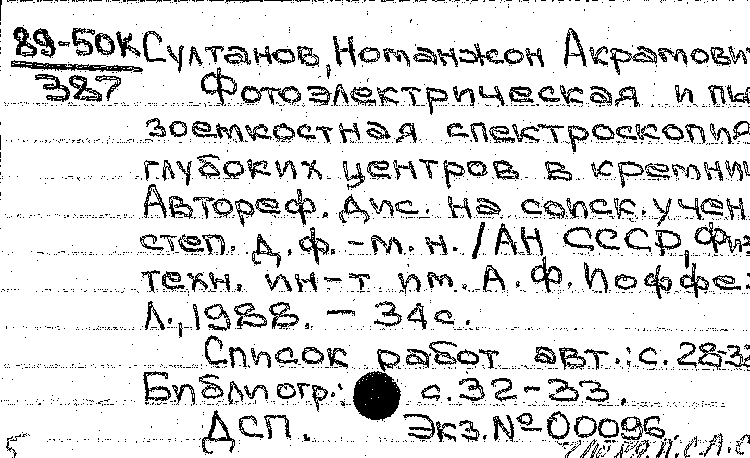 89-50К Султанов, Номанжон Акрамови
387 Фотоэлектрическая и пь
зоемкостная спектроскопия
глубоких центров в кремни
Автореф. Дис. на соиск. учен
степ. Д. ф.-м. н. / АН СССР, Физ
техн. ин-т им. А. Ф. Иоффе:
Л., 1988. - 34 с.
Список работ авт.: с. 28-32
Библиогр.: с. 32-33.
ДСП. Экз. № 00096